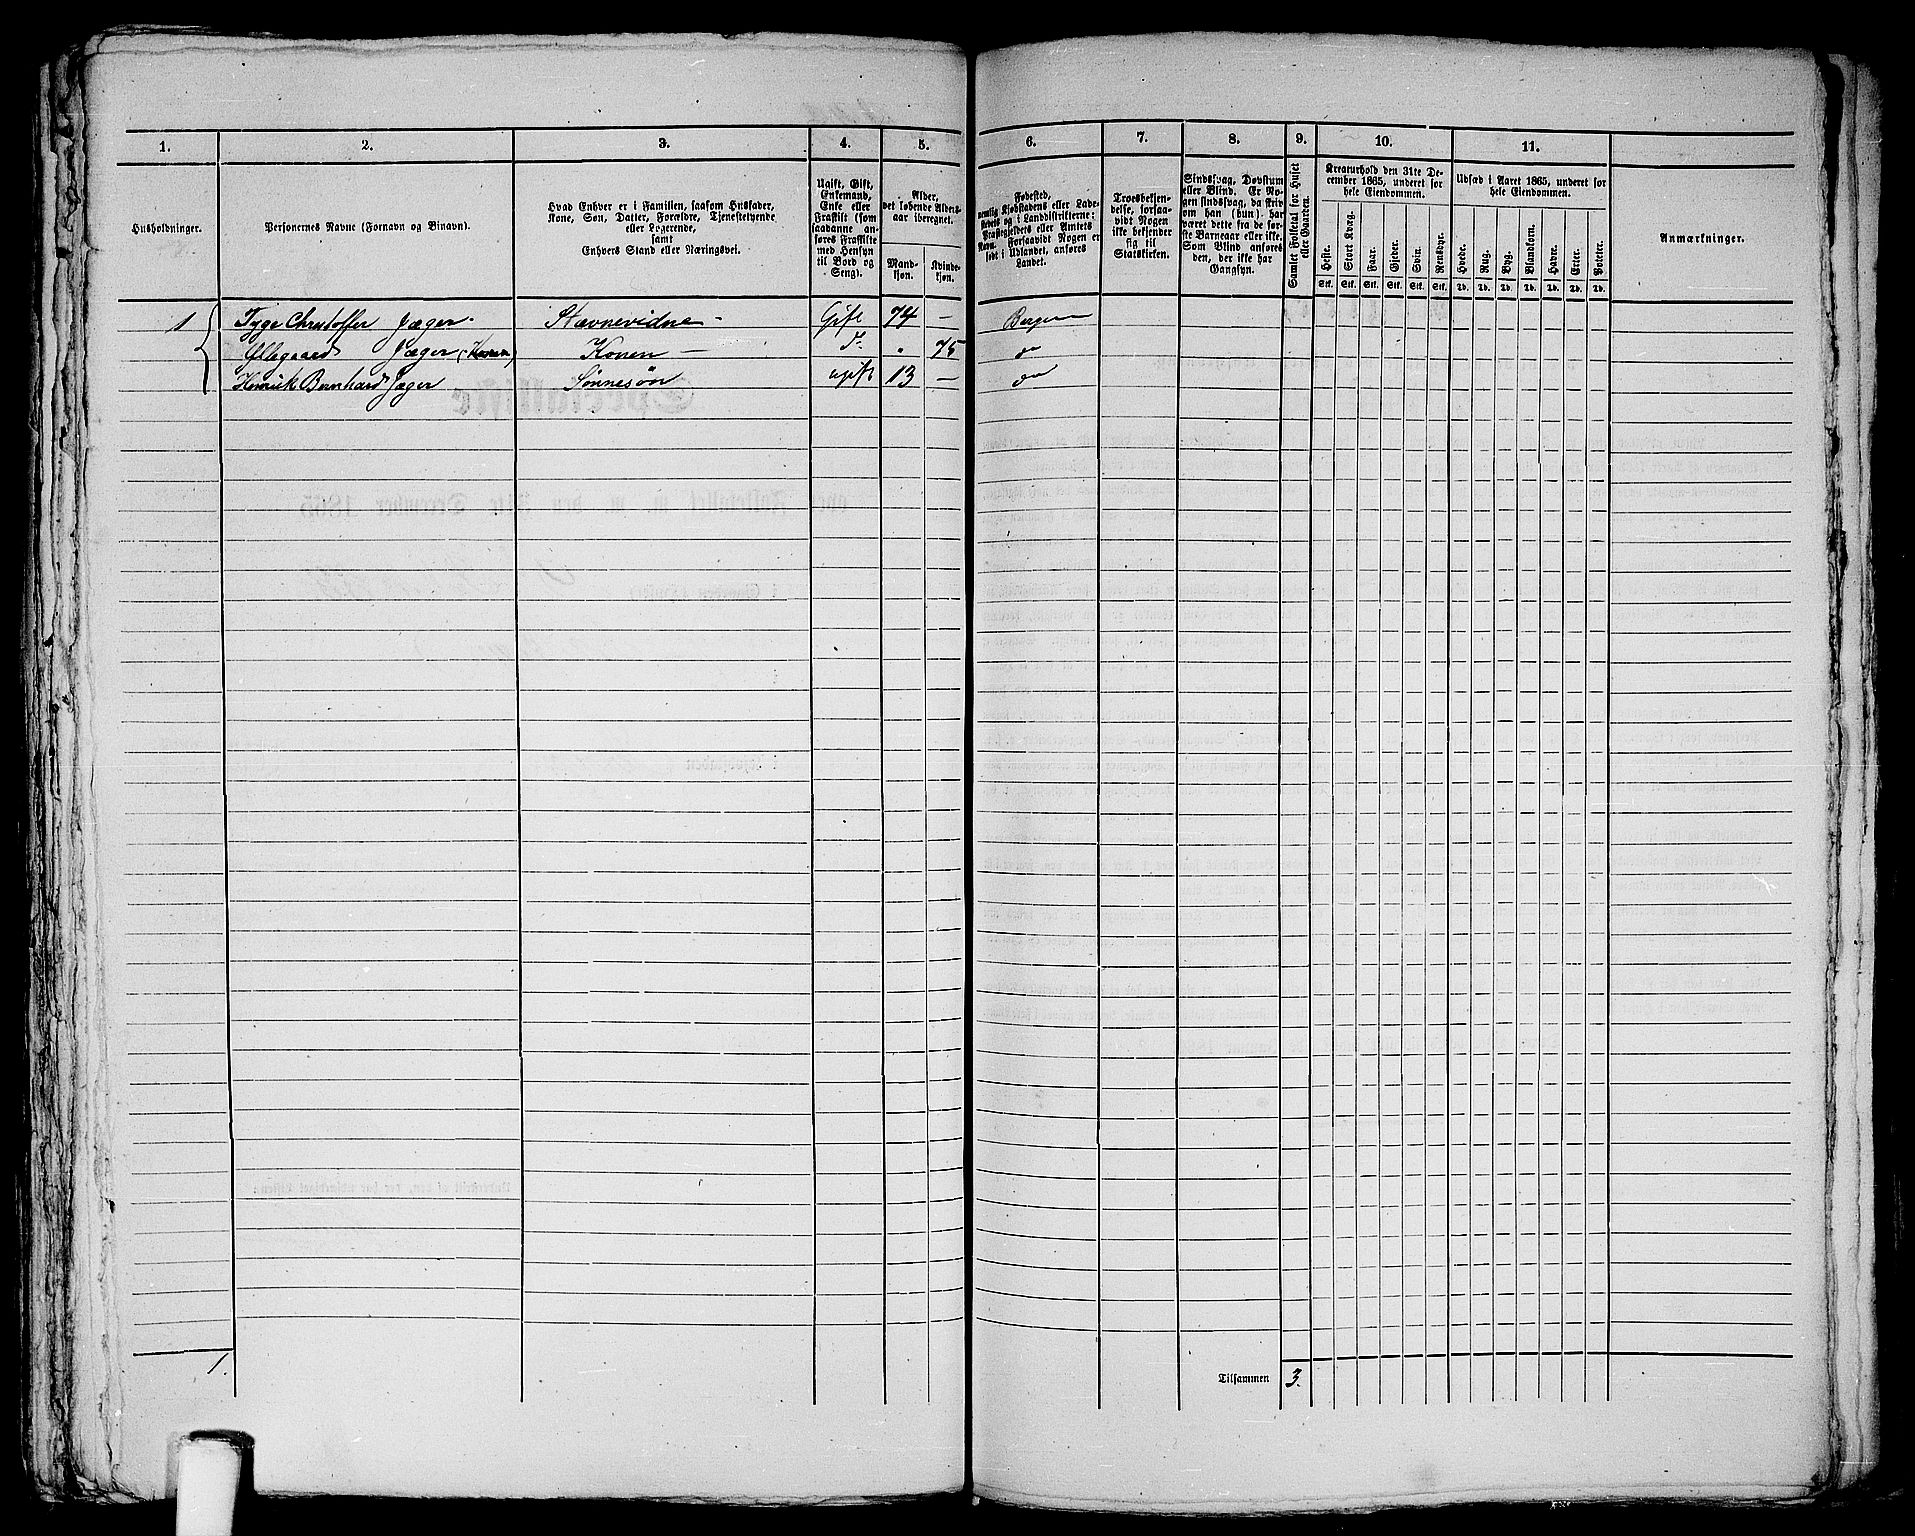 1. 2. 3. 4. 5. 6. 7. 8. 9. 10. 11.
Husholdninger.
Personernes Navne (Fornavn og Binavn).
Hvad Enhver er i Familien, saasom Husfader,
Kone, Søn, Datter, Forældre, Tjenestetyende
eller Logerende,
samt
Enhvers Stand eller Næringsvei.
Ugift, Gift,
Enkemand,
Enke eller
Fraskilt (som
saadanne an-
føres Fraskilte
med Hensyn
til Bord og
Seng).
Alder,
det løbende Alders-
aar iberegnet.
Mand-
kjøn.
Kvinde-
kjøn.
Fødested,
nemlig Kjøbstadens eller Lade-
stedets og i Landdistrikterne:
Præstegjeldets eller Amtets
Navn. Forsaavidt Nogen er
født i Udlandet, anføres
Landet.
Troesbekjen-
delse, forsaa-
vidt Nogen
ikke bekjender
sig til
Statskirken.
Sindssvag, Døvstum
eller Blind. Er No-
gen sindssvag, da skriv
om han (hun) har
været dette fra de før-
ste Barneaar eller ikke.
Som Blind anføres
den, der ikke har
Gangsyn.
Samlet Folketal for Huset
eller Gaarden.
Kreaturhold den 31te De-
cember 1865, underet for
hele Eiendommen.
Heste. Stort Kvæg. Faar. Gjeder. Svin. Rensdyr.
Stk. Stk. Stk. Stk. Stk. Stk.
Udsæd i Aaret 1865, underet for
hele Eiendommen.
Hvede. Rug. Byg. Blandkorn. Havre. Erter. Poteter.
Td. Td. Td. Td. Td. Td. Td.
Anmærkninger.
1 Tyge Christoffer Jæger. Stævnevidne — Gift 74 — Bergen
Ollegaard Jæger (Konen) Konen — D. . 75 do
Henrik Bernhard Jæger Sønnesøn ugift 13 — do
1.
Tilsammen 3.